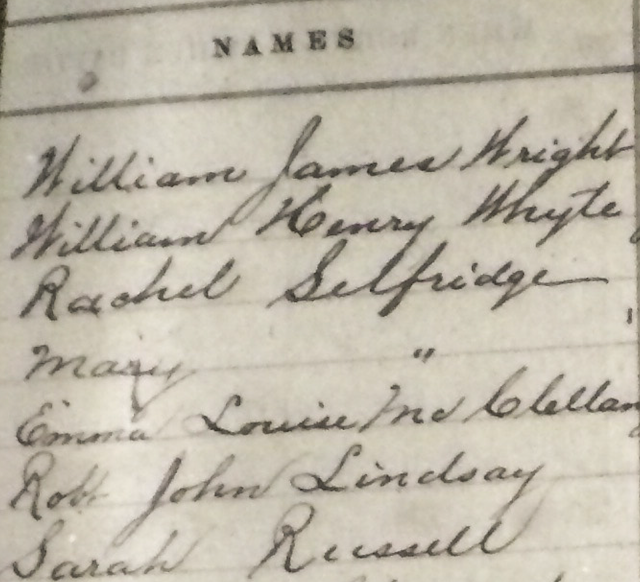 NAMES
William James Wright
William Henry Whyte
Rachel Selfridge
Mary "
Emma Louise Mc Clellan
Robt John Lindsay
Sarah Russell